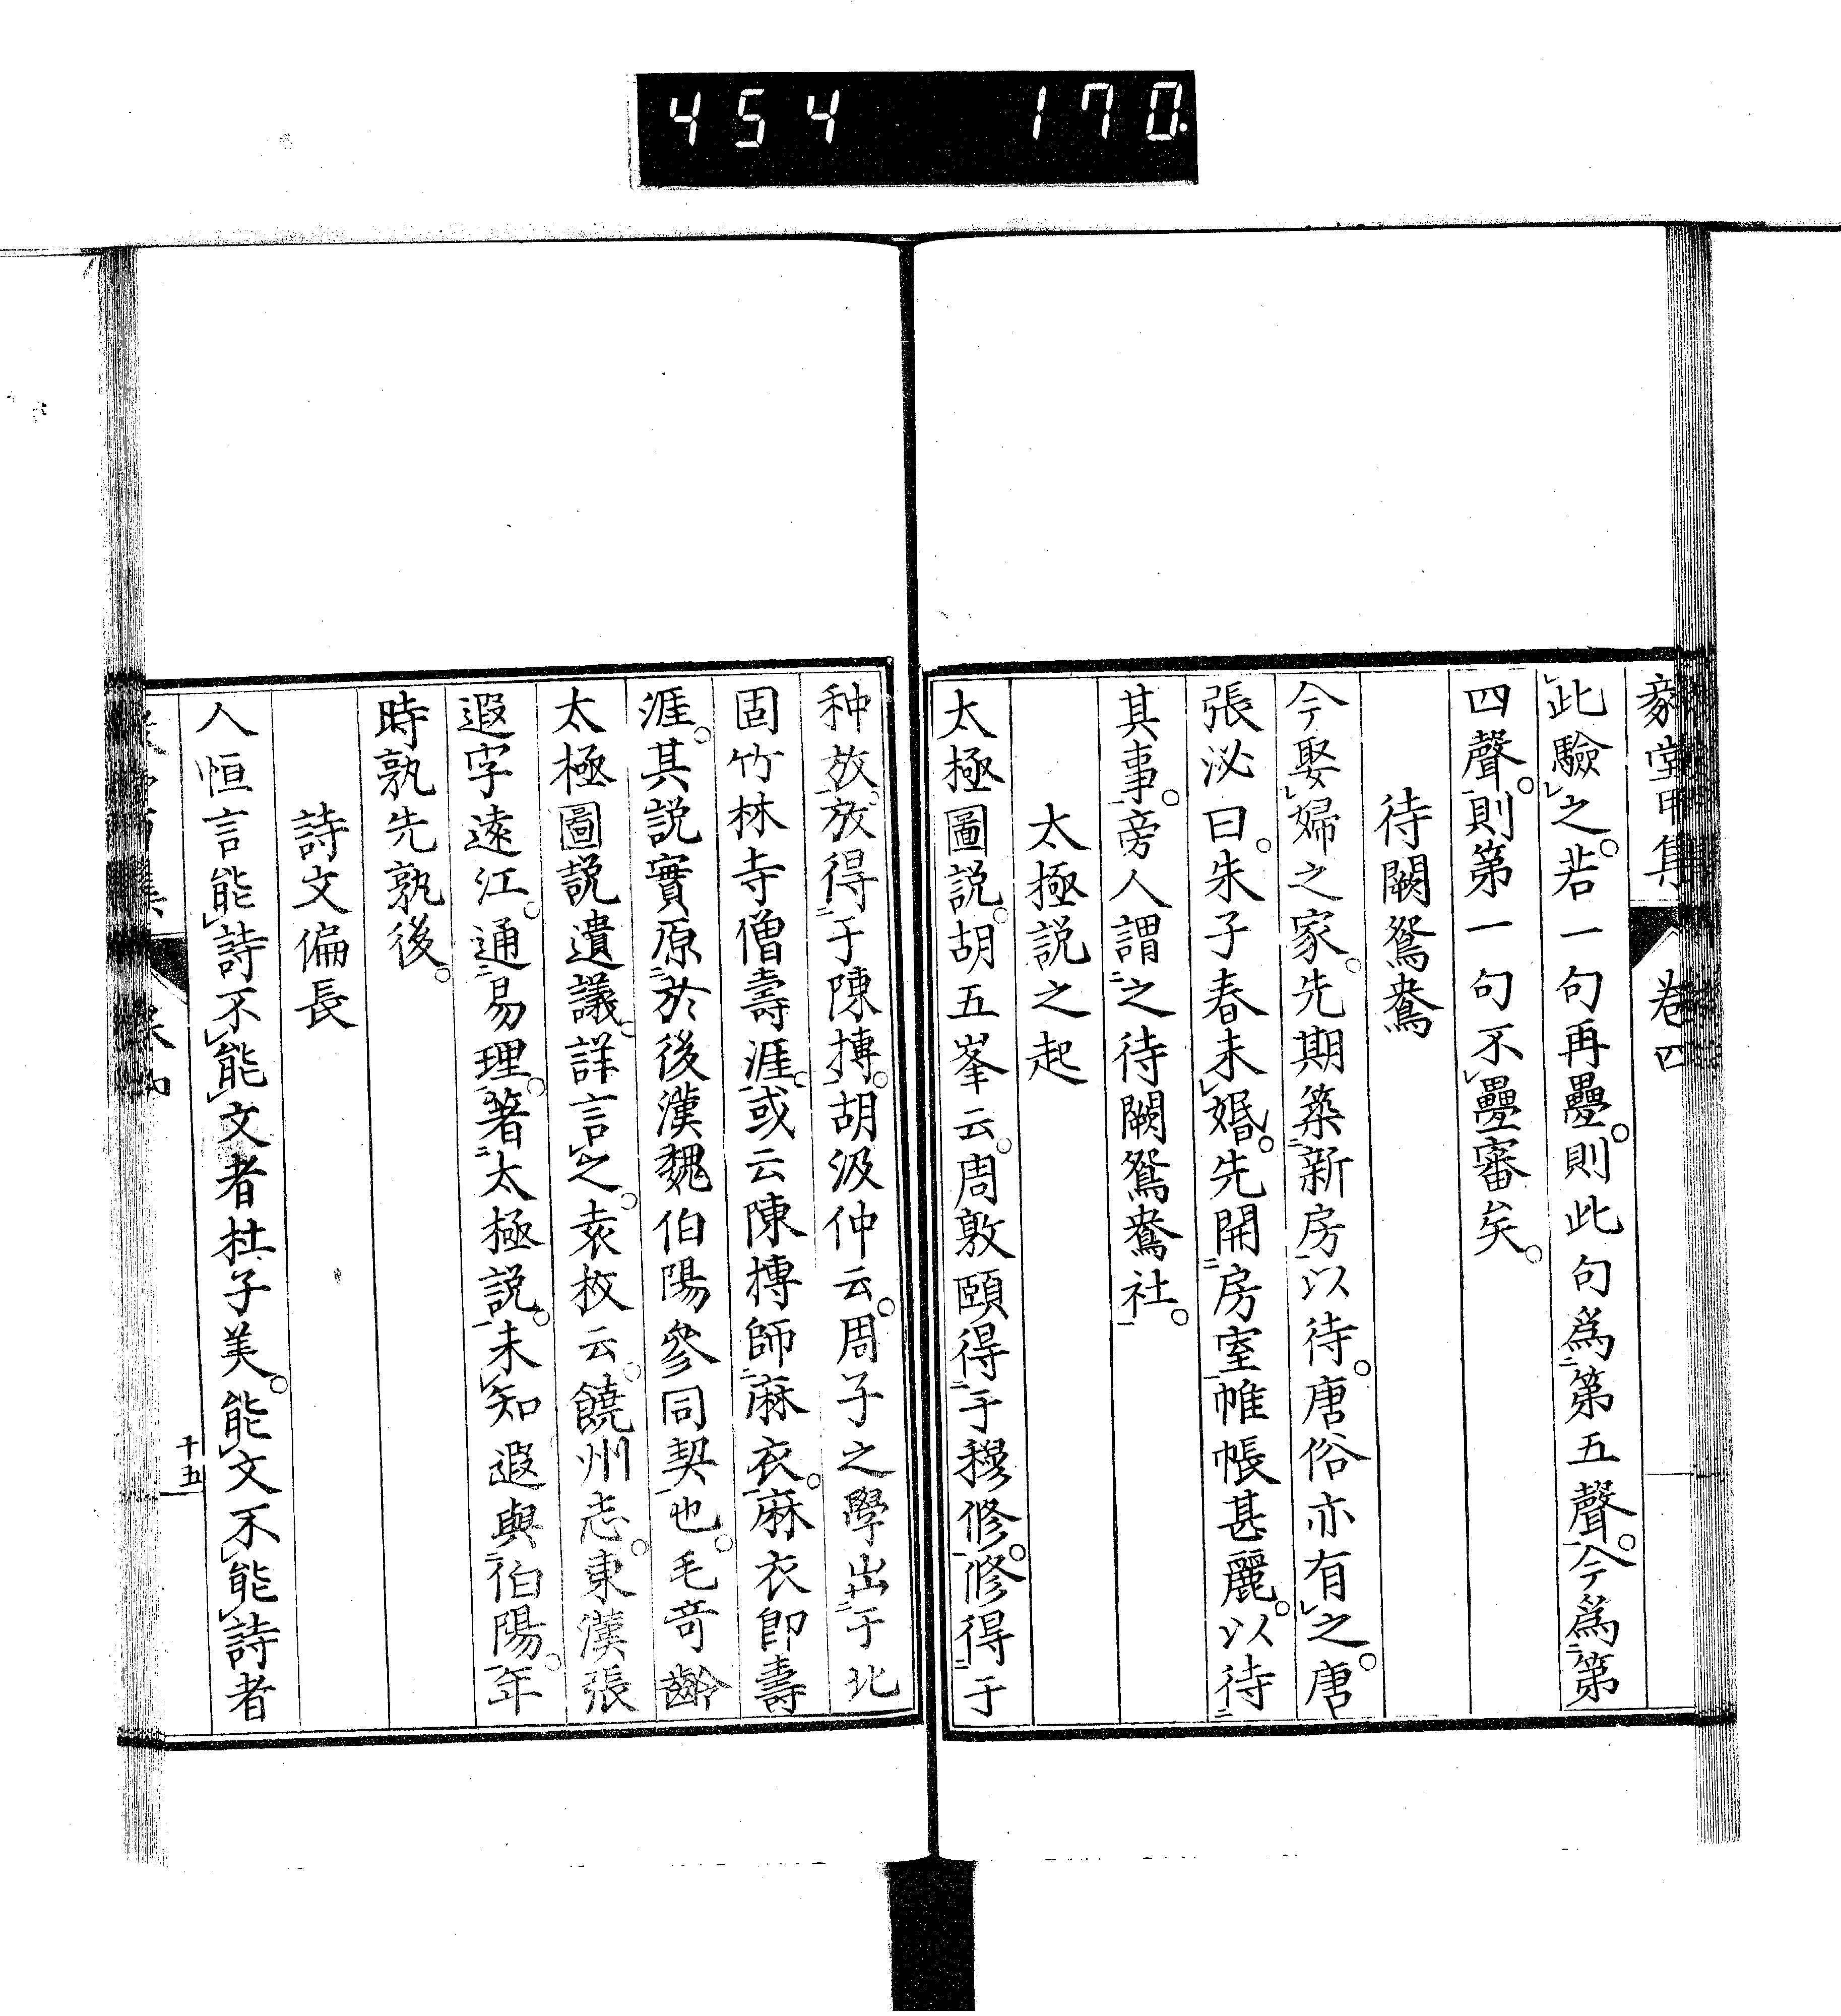 454 170
此驗之。若一句再疊。則此句爲第五聲。今爲第
四聲。則第一句不疊審矣。
待闕鴛鴦
今娶婦之家。先期築新房以待。唐俗亦有之。唐
張泌曰。朱子春未婚。先開房室帷帳甚麗。以待
其事。旁人謂之待闕鴛鴦社。
太極説之起
太極圖説。胡五峯云。周敦頤得于穆修。修得于
种放。放得于陳摶。胡汲仲云。周子之學出于北
固竹林寺僧壽涯。或云陳摶師麻衣。麻衣卽壽
涯。其説實原於後漢魏伯陽參同契也。毛奇齡
太極圖説遺議。詳言之。袁枚云。饒州志。東漢張
遐字遠江。通易理。著太極説。未知遐與伯陽。年
時孰先孰後。
詩文偏長
人恒言能詩不能文者杜子美。能文不能詩者
十五
卷四